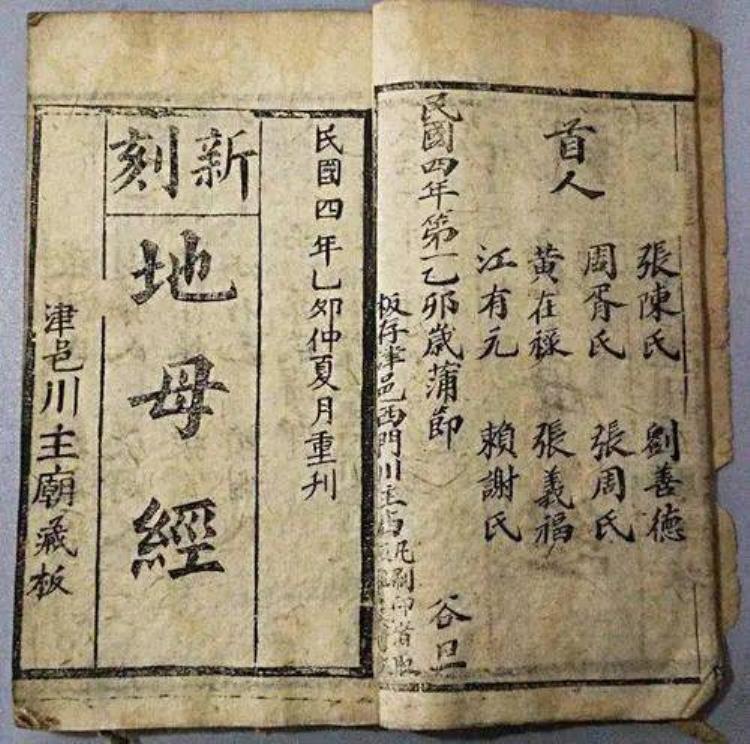 首人
張陳氏 劉善德
周胥氏 張周氏
黃在祿 張義福
江有元 賴謝氏
民國四年第一乙卯歲蒲節 谷旦
板存津邑西門川主庙
凡刷印者
民國四年乙卯仲夏月重刊
新刻
地母經
津邑川主廟藏板